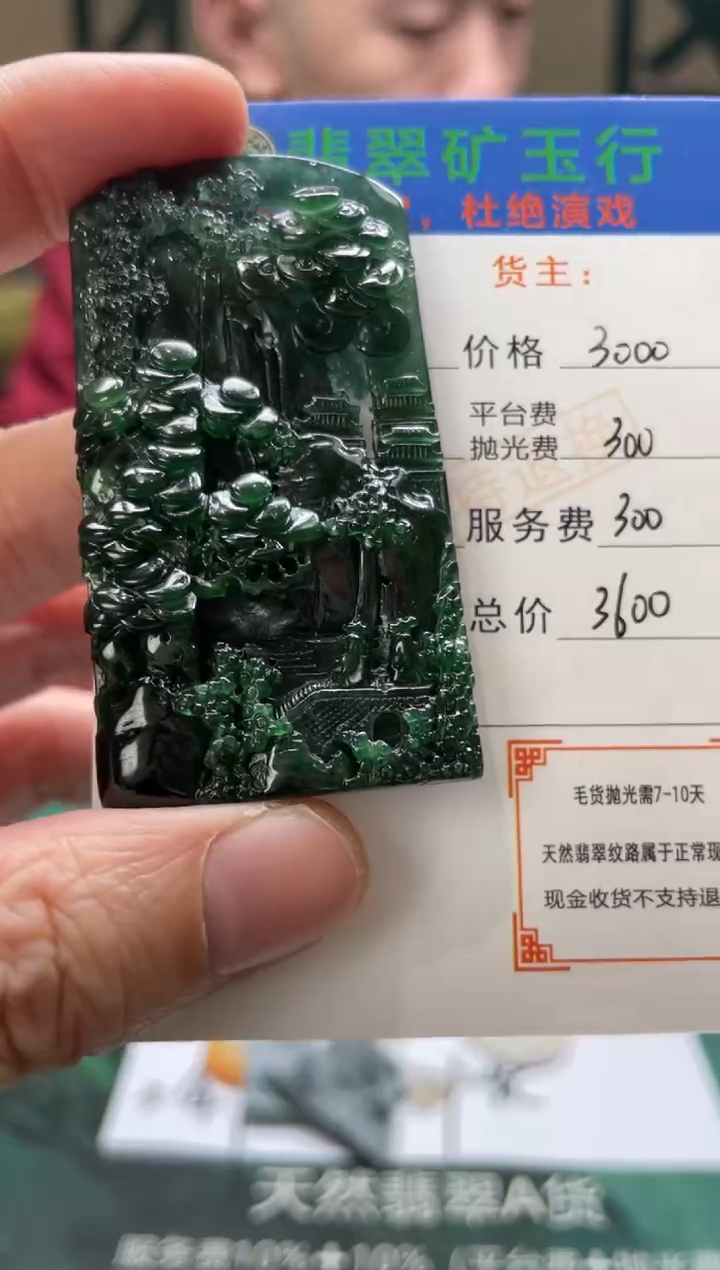 翡翠矿玉行
，杜绝演戏
货主：
价格 3000
平台费
抛光费 300
服务费 300
总价 3600
毛货抛光需7-10天
天然翡翠纹路属于正常现
现金收货不支持退
天然翡翠A货